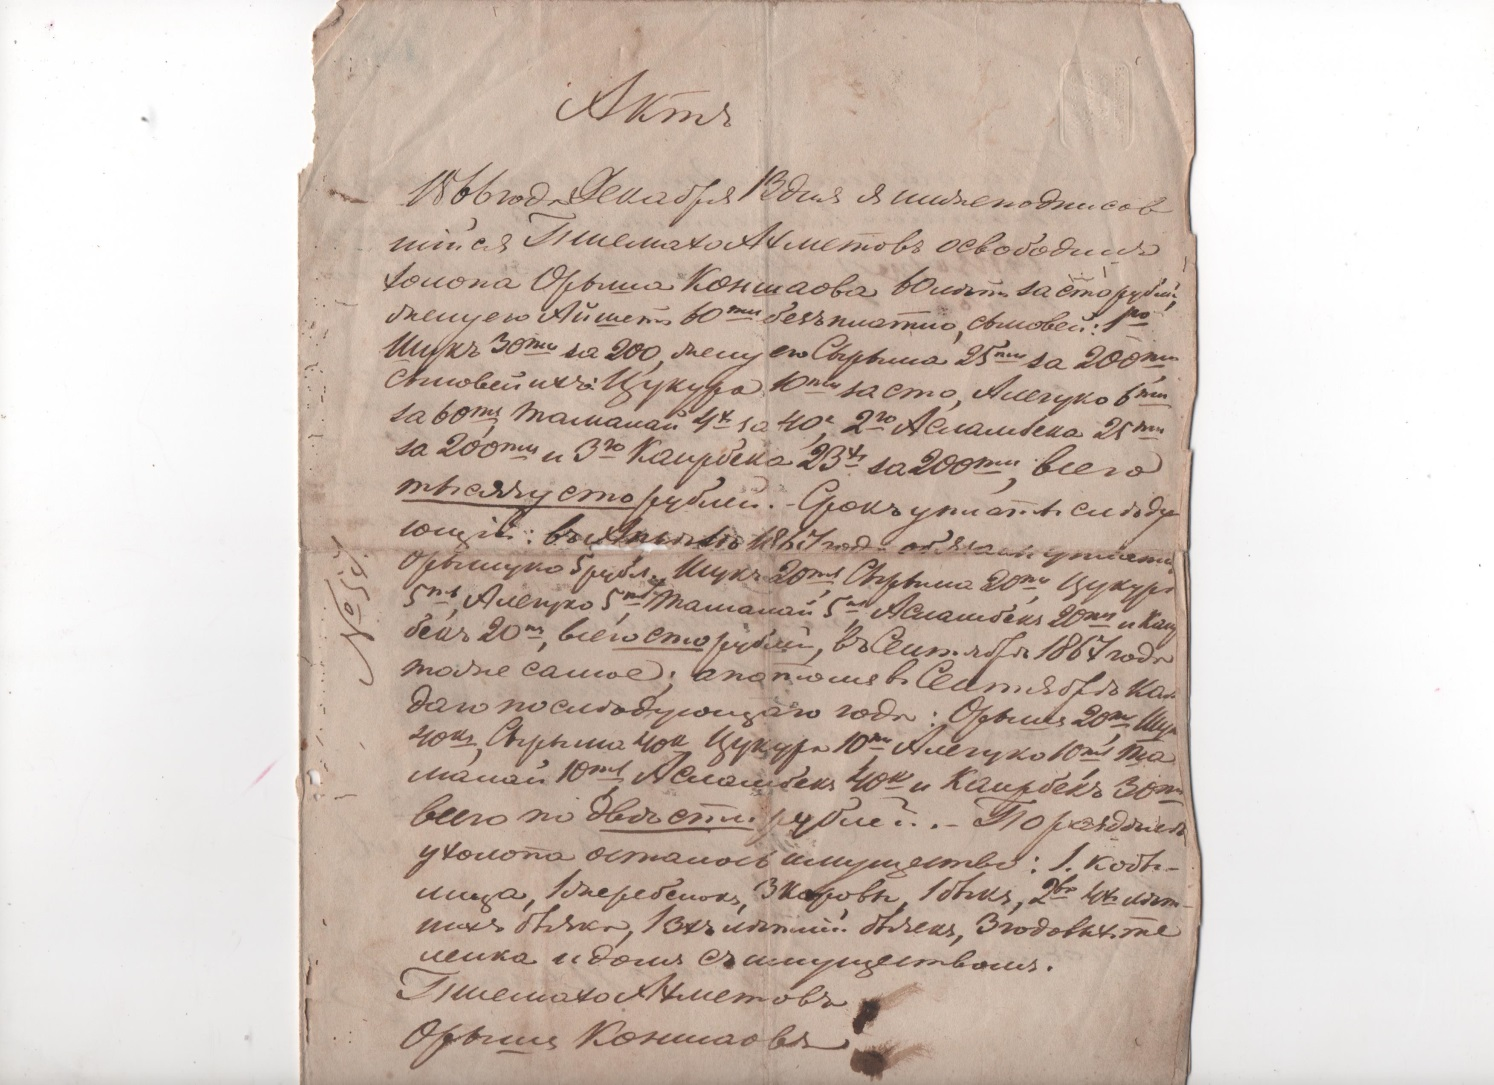 Актъ
1866 года Декабря 13 дня я нижеподписав
шійся Пшемахо Ахметовъ освободилъ
холопа Орыша Коншаова 60 лѣтъ за сто рублей,
жену его Айшетъ 60ти безъплатно, сыновей: 1го
Шукъ 30ти за 200, жену его Сырыма 25ти за 200ти
сыновей ихъ: Цукура 10ти за сто, Алецуко 6ти
за 60ти Тамашай 4х за 40к, 2го Асламбека 25ти
за 200ти и 3го Каирбека 23х за 200ти, всего
тысячу сто рублей. - Срокъ уплаты слѣду
ющій: въ 1867 году обязанъ уплатить
Орышуко 5 рубл., Шукъ 20ть, Сырыма 20ть, Цукура
5ть, Алецуко 5ть Тамашай 5ть Асламбекъ 20ти и Каир
бекъ 20ть, всего сто рублей, въ Сентябрѣ 1867 года
тоже самое; а потомъ въ Сентябрѣ каж
даго послѣдующаго года: Орышъ 20ти Шукъ
40къ, Сырыма 40к Цукура 10ть Алецуко 10ть Та
машай 10ть, Асламбекъ 40к и Каирбекъ 30ть
всего по двѣсти рублей. - По раздѣлѣ
у холопа осталось имущество: 1. кобы-
лица, 1 жеребенокъ, 3 коровы, 1 быкъ, 2ва 4х лѣт-
нихъ бычка, 1 3хъ лѣтній бычекъ, 3 годовыхъ те
ленка и домъ съ имуществомъ.
Пшемахо Ахметовъ
Орышъ Коншаовъ
№ 54.